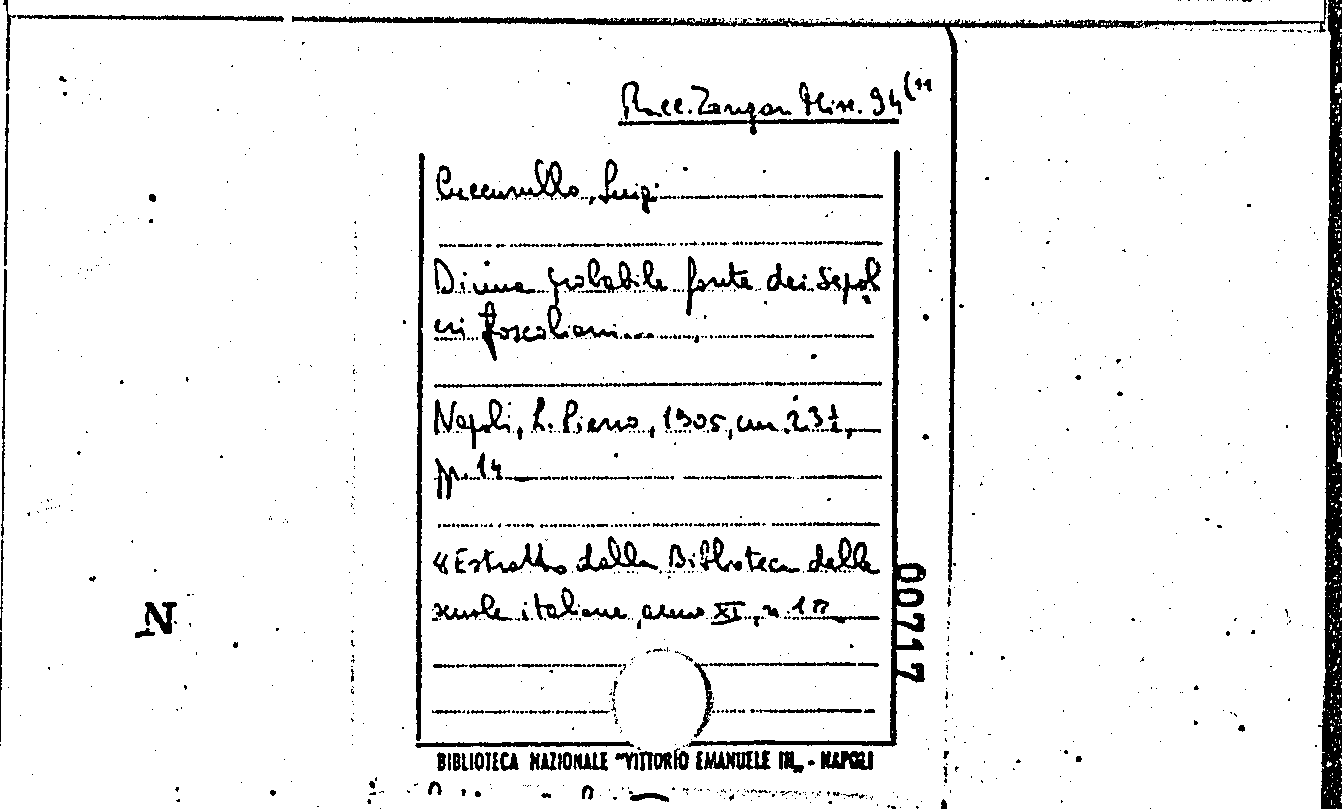 Racc. Zangari Misc. 94(11
Cuccurullo, Luigi
Di una probabile fonte dei Sepol
cri foscoliani...
Napoli, L. Pierro, 1905, cm. 23½,
pp. 14
«Estratto dalla Biblioteca delle
scuole italiane, anno XI, n. 1»
00717
N
BIBLIOTECA NAZIONALE "VITTORIO EMANUELE III" - NAPOLI